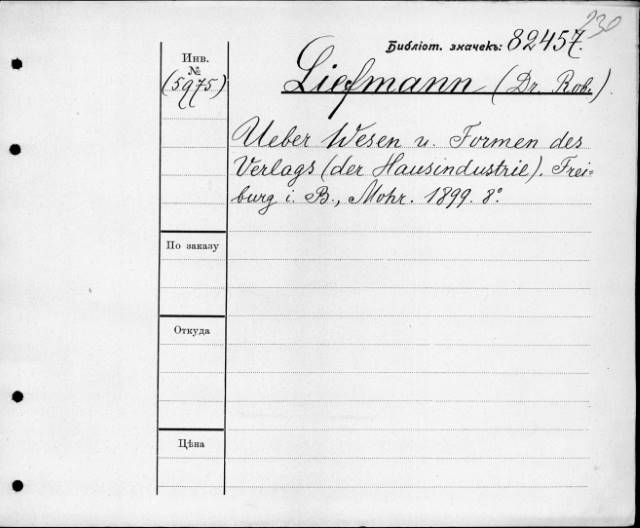 230
Библіот. значекъ: 82457.
Инв.
№
(5975)
Liefmann (Dr. Rob.).
Ueber Wesen u. Formen des
Verlags (der Hausindustrie). Frei=
burg i. B., Mohr. 1899. 8º.
По заказу
Откуда
Цѣна